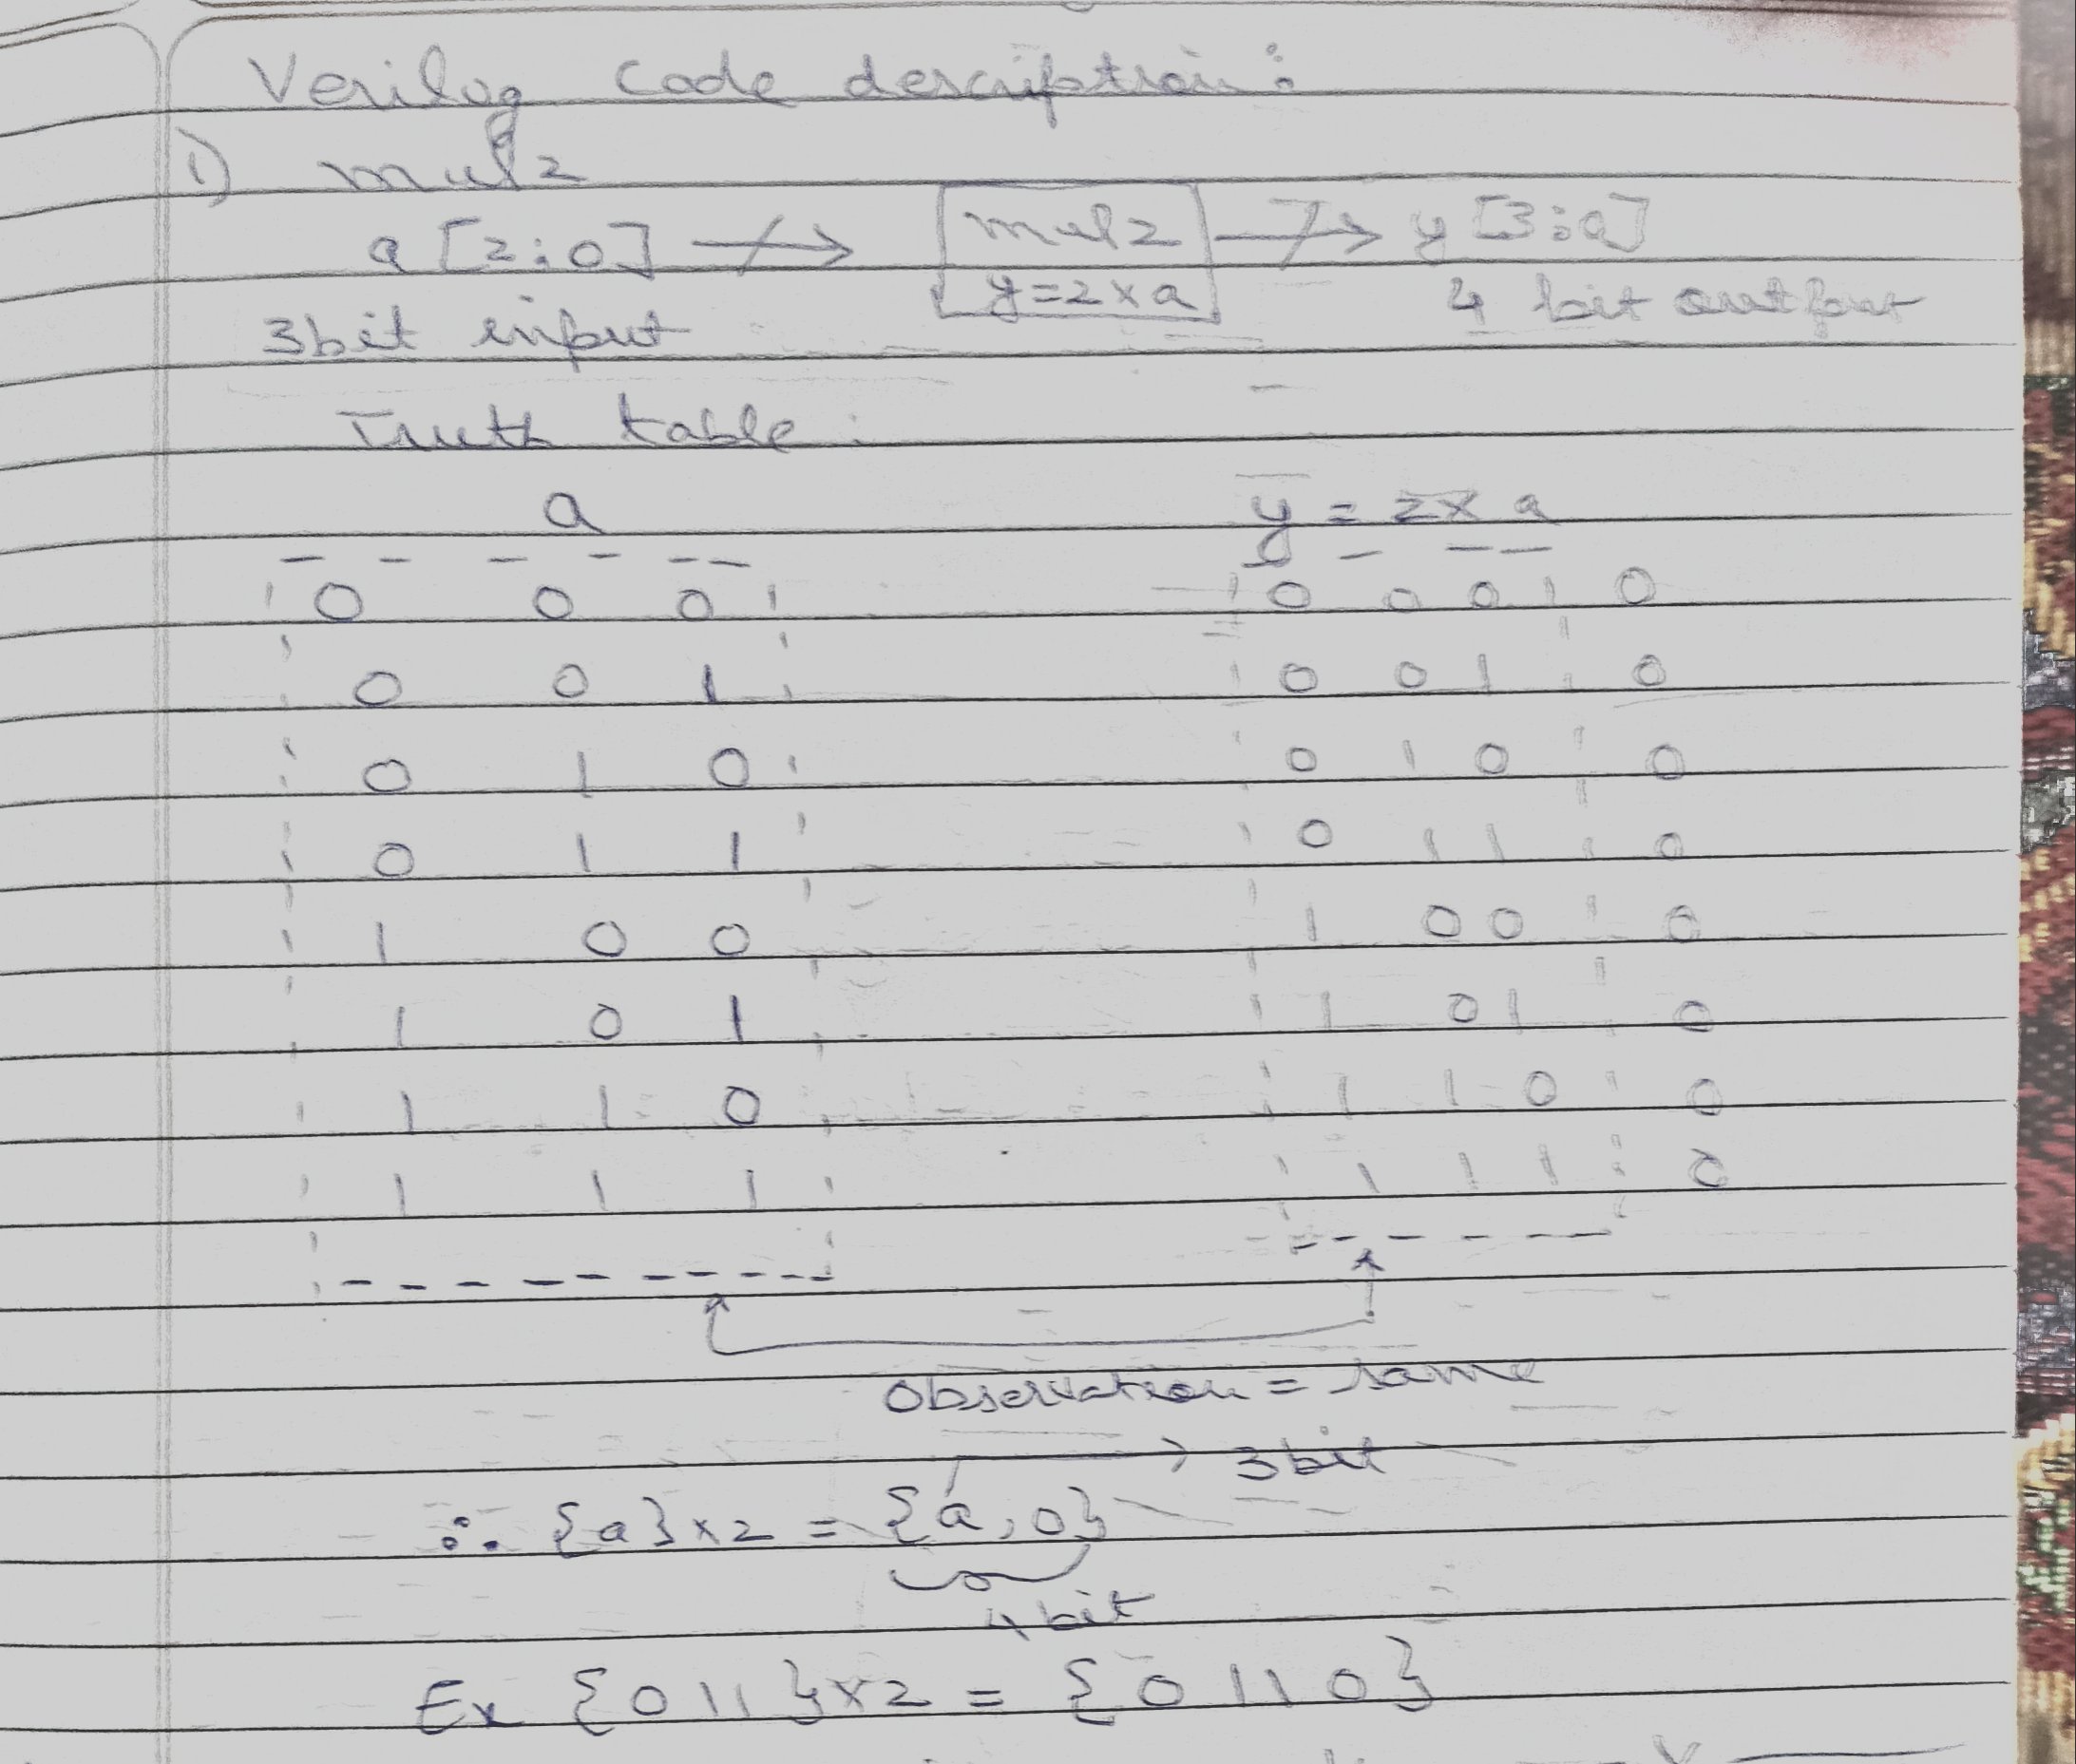 Verilog code description:
1) mul2
a [2:0] → mul2 → y [3:0]
y=2xa
3bit input 4 bit output
Truth table:
a y = 2x a
0 0 0 0 0 0 0
0 0 1 0 0 1 0
0 1 0 0 1 0 0
0 1 1 0 1 1 0
1 0 0 1 0 0 0
1 0 1 1 0 1 0
1 1 0 1 1 0 0
1 1 1 1 1 1 0
Observation = same
→ 3bit
∴ {a}x2 = {a,0}
4bit
Ex {011}x2 = {0110}